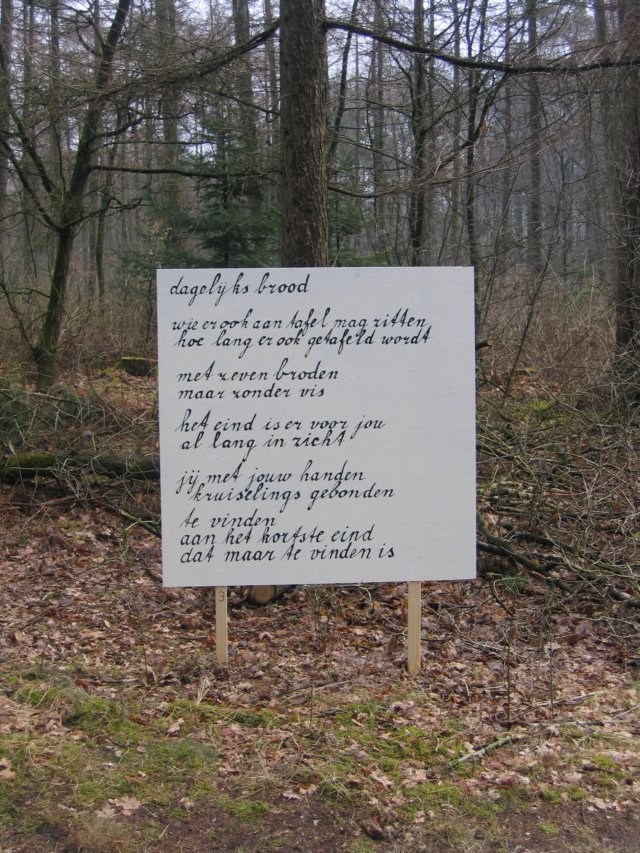 dagelijks brood
wie er ook aan tafel mag zitten
hoe lang er ook getafeld wordt
met zeven broden
maar zonder vis
het eind is er voor jou
al lang in zicht
jij met jouw handen
kruiselings gebonden
te vinden
aan het kortste eind
dat maar te vinden is
3